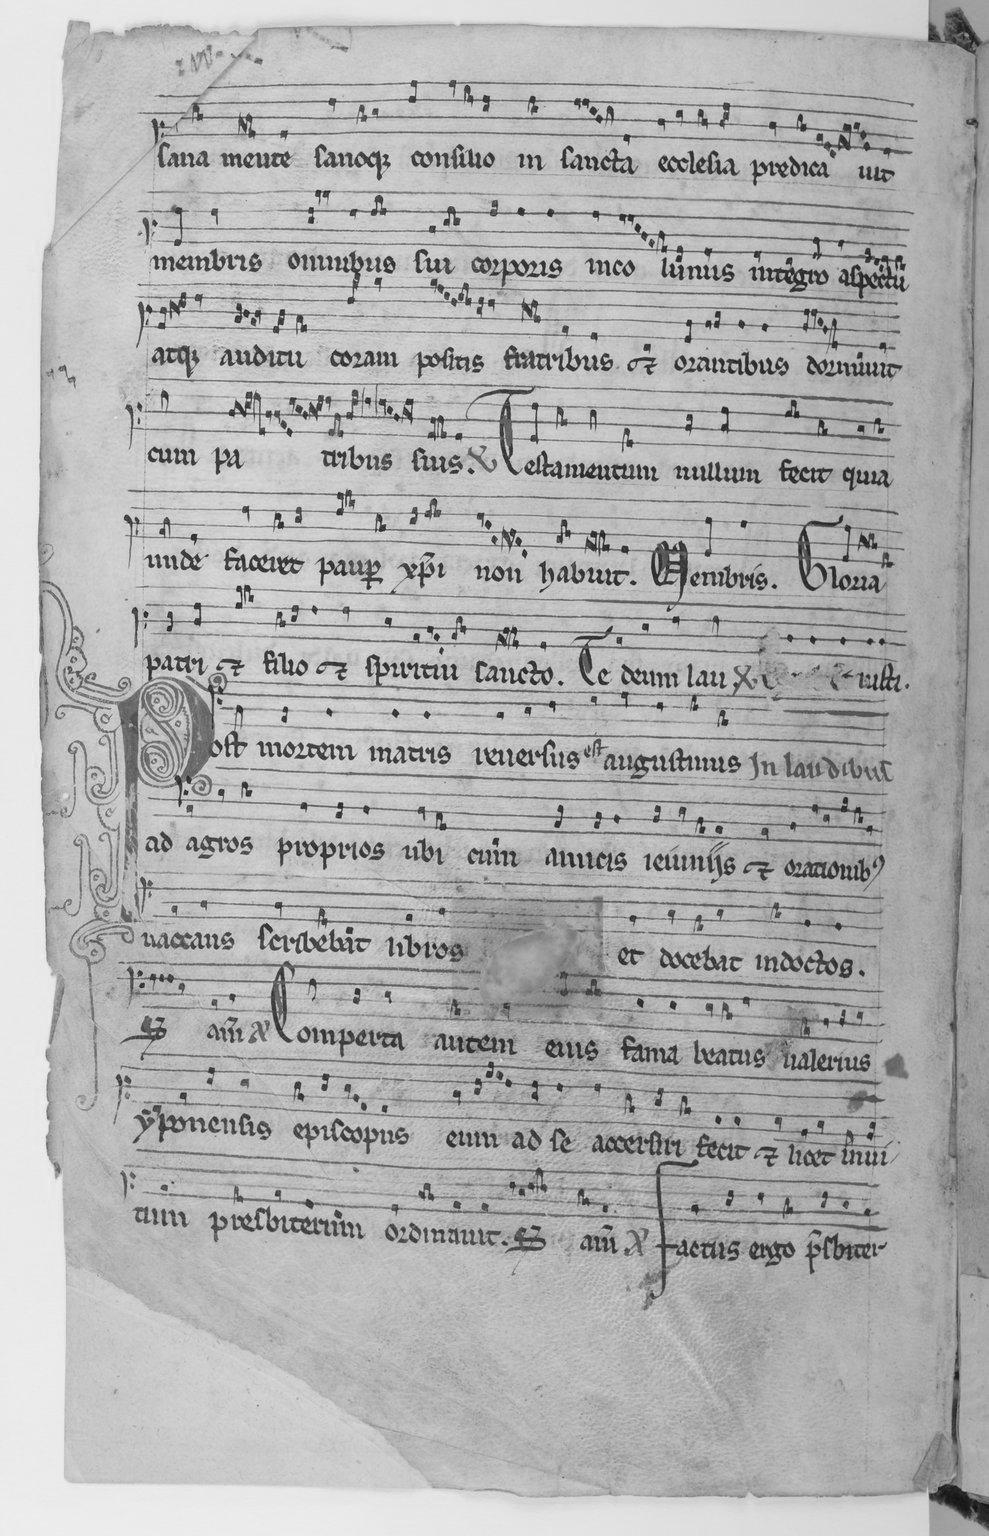 sana mente sanoqꝫ consilio in sancta ecclesia predica uit
membris omnibus sui corporis inco lumis integro aspectu
atqꝫ auditu coram positis fratribus ⁊ orantibus dormiuit
cum pa tribus suis. ℣ Testamentum nullum fecit quia
unde faceret paup̲ xp̅i non habuit. Membris. Gloria
patri ⁊ filio ⁊ spiritui sancto. Te deum lau ℣ iusti.
Post mortem matris reuersus est augustinus In laudibus
ad agros proprios ubi cum amicis ieiuniis ⁊ orationibꝰ
uaccans scribebat libros et docebat indoctos.
am̅ ℣ Comperta autem eius fama beatus ualerius
yponensis episcopus eum ad se accersiri fecit ⁊ licet inui
tum presbiterum ordinauit. am̅ ℣ Factus ergo p̅sbiter